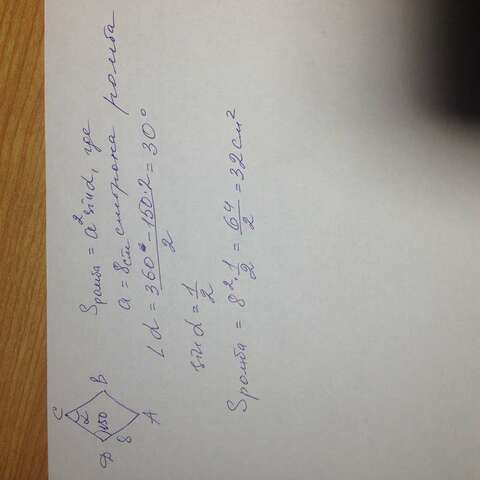 C
α
D 150 B
8
A
Sромба = a² sinα, где
a = 8см сторона ромба
∠α = 360° - 150·2 / 2 = 30°
sin α = 1/2
Sромба = 8² · 1/2 = 64/2 = 32 см²